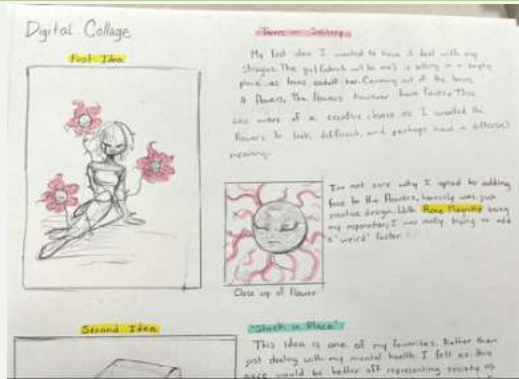 Digital Collage
First Idea
My first idea I wanted to have it deal with my
struggles. The girl (which will be me) is sitting in a empty
place as her. Coming out of the
flowers, The flowers however have faces. This
was more of a creative choice as I wanted the
flowers to look different, and perhaps have a different
meaning.
I'm not sure why I opted to adding
face to the flowers, honestly was just
creative design. With Rene Magritte being
my inspiration, I was really trying to add
a "weird" factor
Close up of Flower
Second Idea
"Stuck in Place"
This idea is one of my favorites. Rather than
just dealing with my mental health. I felt as this
would be better off representing society as